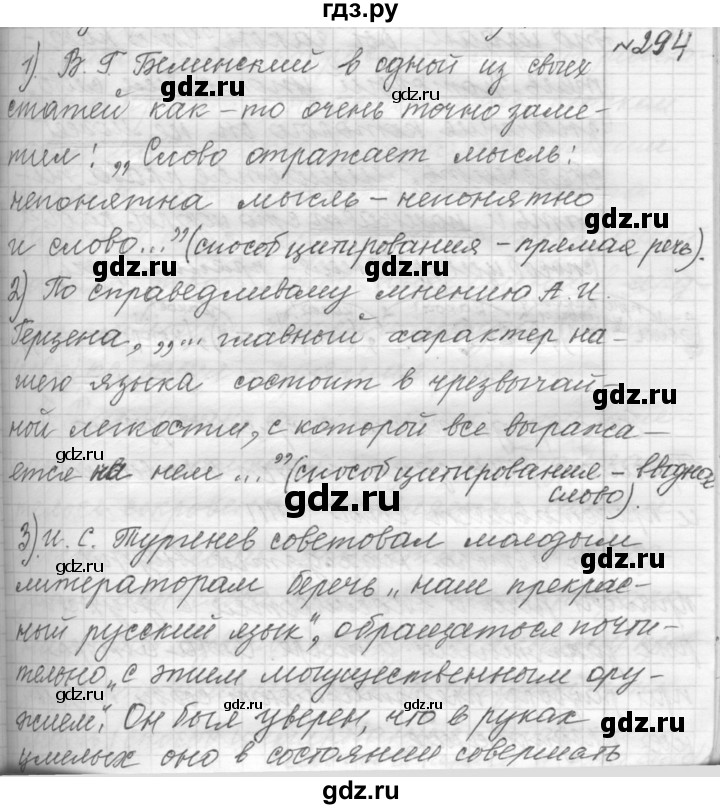 гдз.ру
№294
1). В. Г. Белинский в одной из своих
статей как-то очень точно заме-
тил: „Слово отражает мысль:
непонятна мысль – непонятно
и слово...” (способ цитирования – прямая речь).
2) По справедливому мнению А. И.
Герцена, „... главный характер на-
шего языка состоит в чрезвычай-
ной легкости, с которой все выража-
ется на нем ...” (способ цитирования – вводное
слово).
3). И. С. Тургенев советовал молодым
литераторам беречь „наш прекрас-
ный русский язык”, обращаться почти-
тельно „с этим могущественным ору-
жием”. Он был уверен, что в руках
умелых оно в состоянии совершать
gdz.ru
gdz.ru
gdz.ru
gdz.ru
gdz.ru
gdz.ru
gdz.ru
gdz.ru
gdz.ru
gdz.ru
gdz.ru
gdz.ru
gdz.ru
gdz.ru